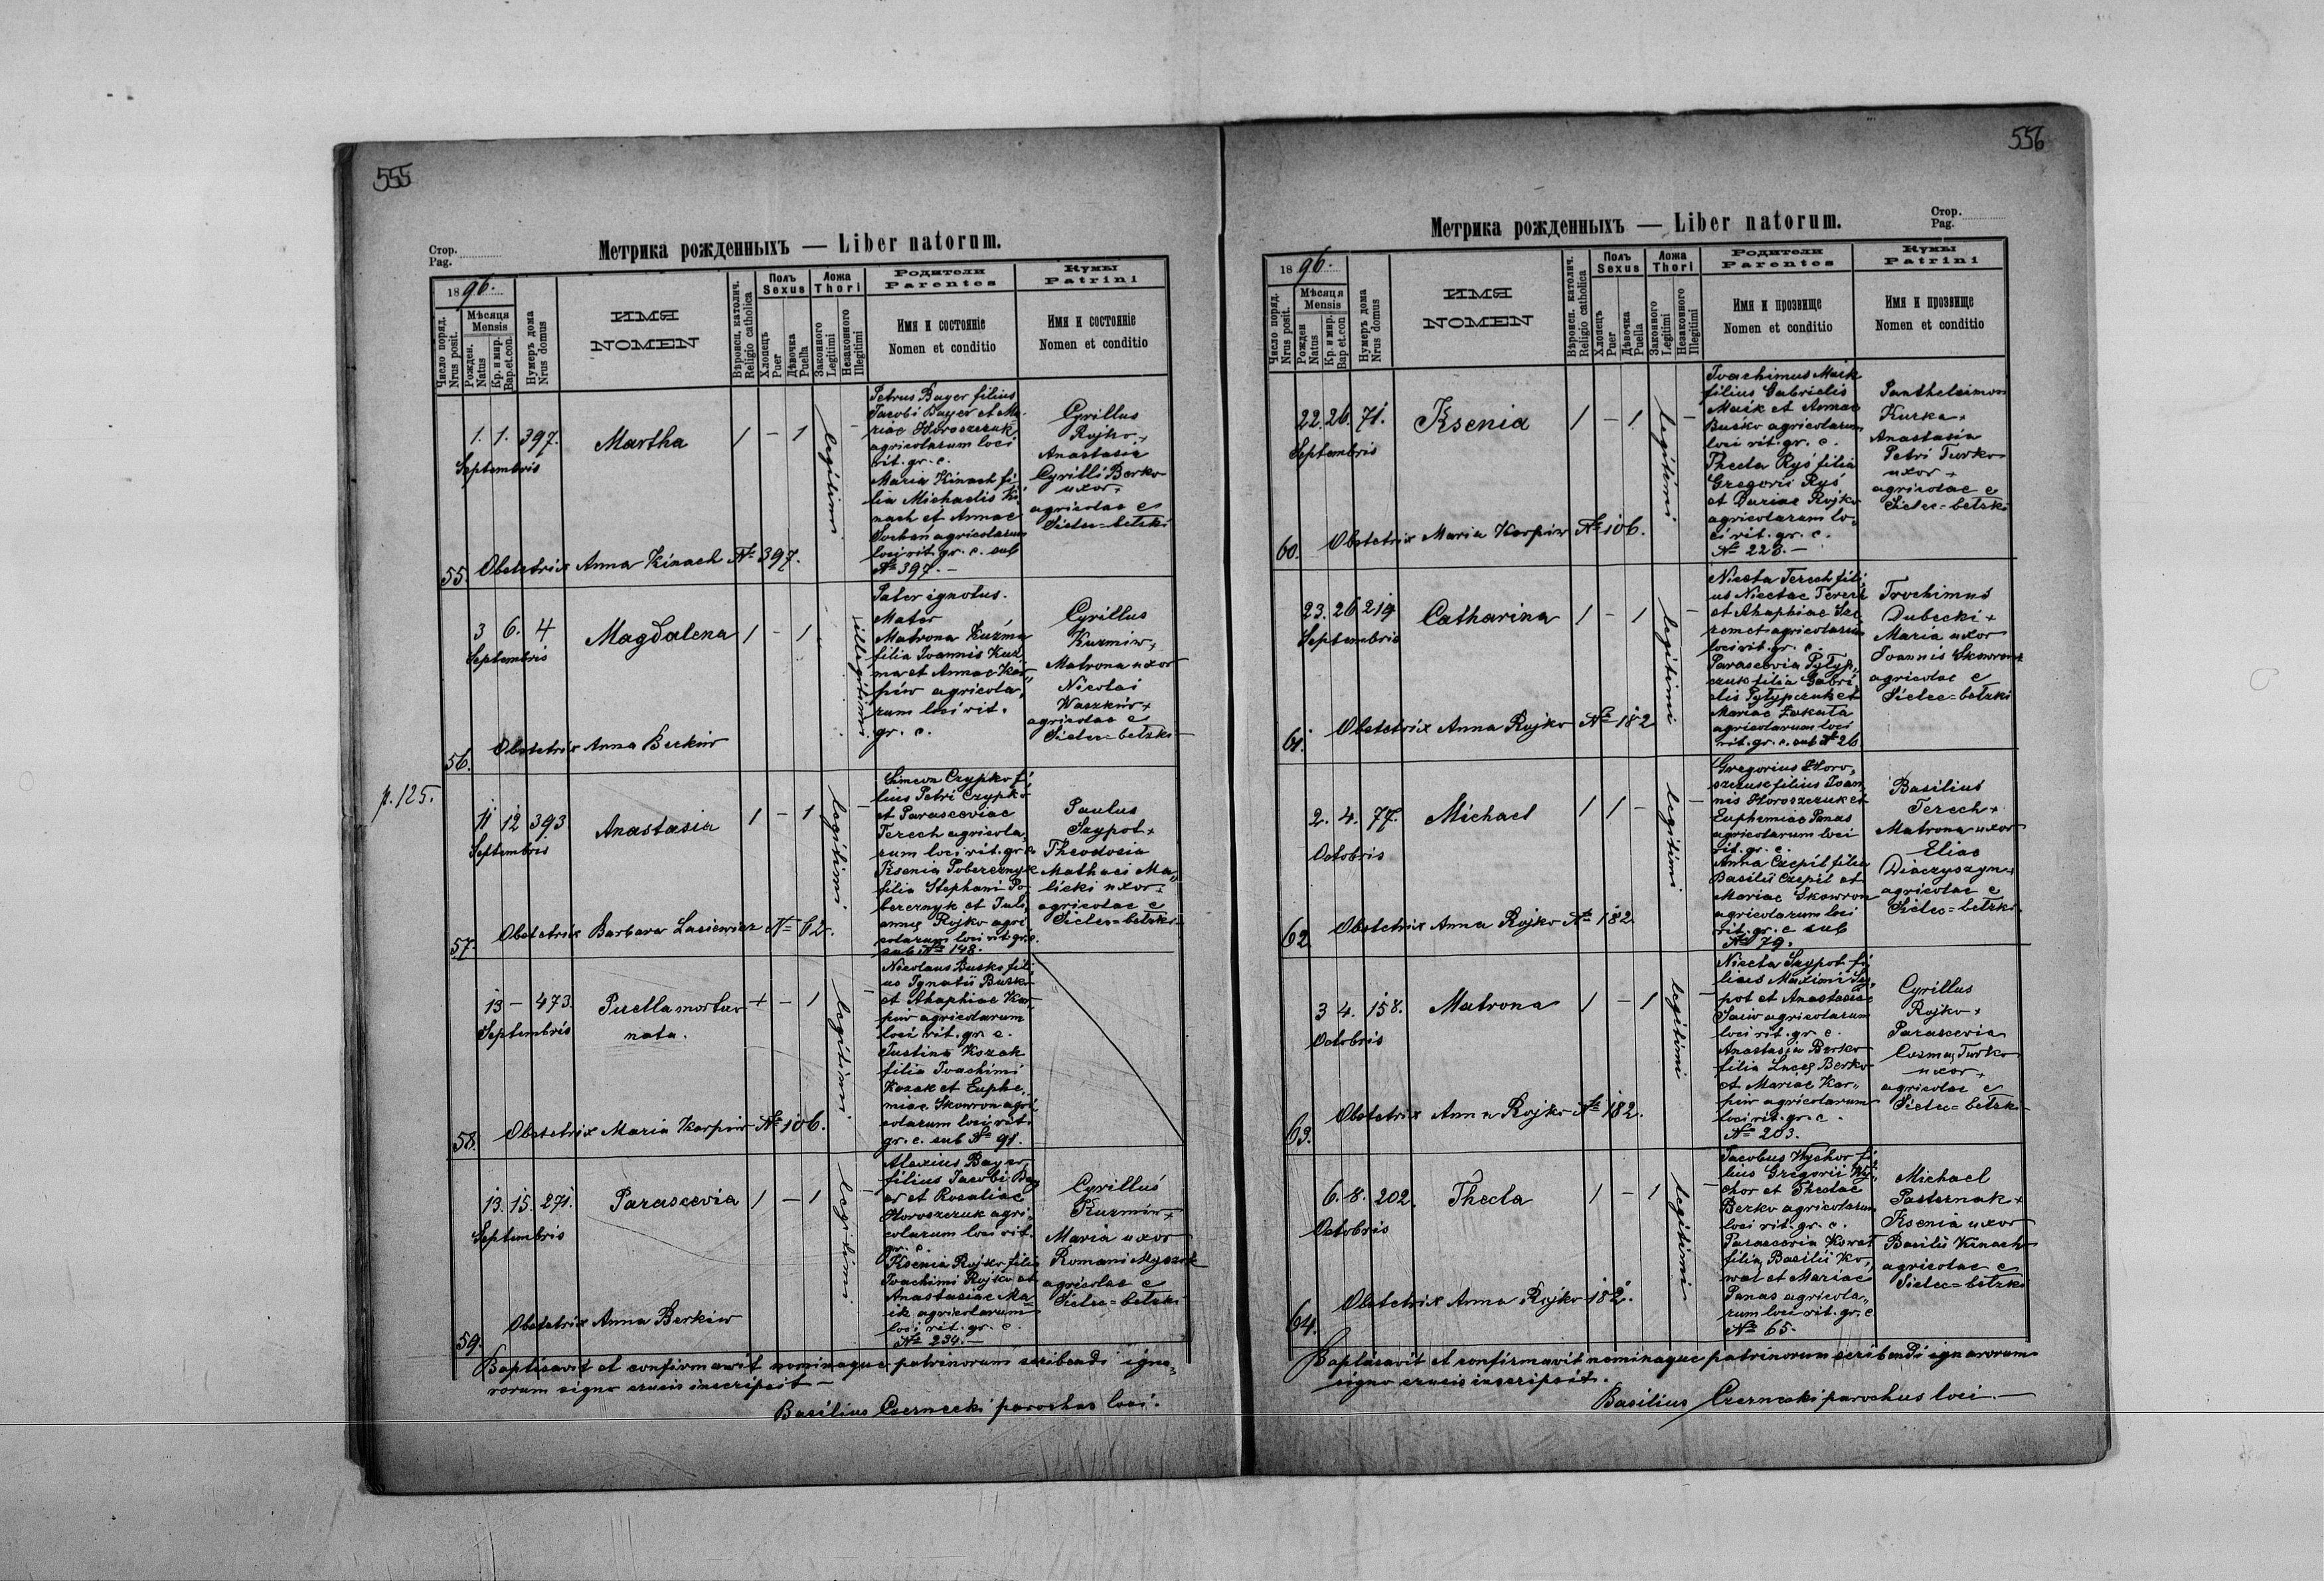 555
Стор.
Pag.
Метрика рожденныхъ — Liber natorum.
1896.
Число поряд.
Nrus posit.
Мѣсяця
Mensis
Рожден.
Natus
Кр. и мир.
Bap.et.con.
Нумеръ дома
Nrus domus
ИМЯ
NOMEN
Вѣроисп. католич.
Religio catholica
Полъ
Sexus
Хлопецъ
Puer
Дѣвочка
Puella
Ложа
Thori
Законного
Legitimi
Незаконного
Illegitimi
Родители
Parentes
Имя и состояніе
Nomen et conditio
Кумы
Patrini
Имя и состояніе
Nomen et conditio
1. 1. 397.
Septembris
Martha
1 - 1
legitimi
Petrus Bayer filius
Jacobi Bayer et Ma-
riae Horoszczuk
agricolarum loci
rit. gr. c.
Maria Kinach fi-
lia Michaelis Ki-
nach et Annae
Sochań agricolarum
loci rit. gr. c. sub
№ 397. —
Cyrillus
Rojko +
Anastasia
Cyrilli Berko
uxor +
agricolae e
Sielec-bełzki
55. Obstetrix Anna Kinach № 397.
3 6. 4
Septembris
Magdalena
1 - 1
illegitimi
Pater ignotus.
Mater
Matrona Kuźma
filia Joannis Kuź
ma et Annae Kar„
piw agricola„
rum loci rit.
gr. c.
Cyrillus
Kuzmiw +
Matrona uxor
Nicolai
Waszkiw +
agricolae e
Sielec-bełzki
56. Obstetrix Anna Berkiw
p. 125.
11 12 393
Septembris
Anastasia
1 - 1
legitimi
Simeon Czypko fi„
lius Petri Czypko
et Parasceviae
Terech agricola„
rum loci rit. gr. c.
Ksenia Pobereznyk
filia Stephani Po
bereznyk et Juli„
annę Rojko agri
colarum loci rit. gr. c.
sub № 148.
Paulus
Szypot +
Theodosia
Mathaei Ma„
licki uxor +
agricolae e
Sielec-bełzki
57. Obstetrix Barbara Lasiewicz № 62.
13 - 473
Septembris
Puella mortuo
nata.
+ - 1
legitimi
Nicolaus Busko fili„
us Ignatii Busko
et Ahaphiae Kar„
piw agricolarum
loci rit. gr. c.
Justina Kozak
filia Joachimi
Kozak et Euphe„
miae Skowron agri
colarum loci rit.
gr. c. sub № 91.
58. Obstetrix Maria Karpiw № 106.
13. 15. 271.
Septembris
Parascevia
1 - 1
legitimi
Alexius Bayer
filius Jacobi Bay
er et Rosaliae
Horoszczuk agri„
colarum loci rit.
gr. c.
Ksenia Rojko filia
Joachimi Rojko et
Anastasiae Ma„
ik agricolarum
loci rit. gr. c.
№ 234. —
Cyrillus
Kuzmiw +
Maria uxor
Romani Myszok
agricolae e
Sielec-bełzki
59. Obstetrix Anna Berkiw
Baptisavit et confirmavit nominaque patrinorum scribendi igna„
rorum signo crucis inscripsit —
Basilius Czernecki parochus loci.
556
Стор.
Pag.
Метрика рожденныхъ — Liber natorum.
1896.
Число поряд.
Nrus posit.
Мѣсяця
Mensis
Рожден
Natus
Кр. и мир.
Bap et.con
Нумеръ дома
Nrus domus
ИМЯ
NOMEN
Вѣроисп. католич.
Religio catholica
Полъ
Sexus
Хлопецъ
Puer
Дѣвочка
Puella
Ложа
Thori
Законного
Legitimi
Незаконного
Illegitimi
Родители
Parentes
Имя и прозвище
Nomen et conditio
Кумы
Patrini
Имя и прозвище
Nomen et conditio
22. 26. 71.
Septembris
Ksenia
1 - 1
legitimi
Joachimus Maik
filius Gabrielis
Maik et Annae
Busko agricolarum
loci rit. gr. c.
Thecla Ryś filia
Gregorii Ryś
et Dariae Rojko
agricolarum lo„
ci rit. gr. c.
№ 228. —
Panthelaimon
Kurka +
Anastasia
Petri Turko
uxor +
agricolae e
Sielec-bełzki
60. Obstetrix Maria Karpiw № 106.
23. 26 219
Septembris
Catharina
1 - 1
legitimi
Niceta Terech fili„
us Nicetae Terech
et Ahaphiae Sze„
remet agricolarum
loci rit. gr. c.
Parascevia Pyłyp„
czuk filia Gabri
elis Pyłypczuk et
Mariae Zakała
agricolarum loci
rit. gr. c. sub № 26
Trochimus
Dubecki +
Maria uxor
Joannis Skowron +
agricolae e
Sielec-bełzki
61. Obstetrix Anna Rojko № 182
2. 4. 77.
Octobris
Michael
1 1 -
legitimi
Gregorius Horo„
szczuk filius Joan
nis Horoszczuk et
Euphemiae Panas
agricolarum loci
rit. gr. c.
Anna Czepil filia
Basilii Czepil et
Mariae Skowron
agricolarum loci
rit. gr. c sub
№ 79.
Basilius
Terech +
Matrona uxor
Eliae
Diaczyszyn +
agricolae e
Sielec-bełzki.
62 Obstetrix Anna Rojko № 182.
3 4. 158.
Octobris
Matrona
1 - 1
legitimi
Niceta Szypot fi„
lius Maximi Szy„
pot et Anastasiae
Saiw agricolarum
loci rit. gr. c.
Anastasia Berko
filia Lucę Berko
et Mariae Kar„
piw agricolarum
loci rit. gr. c.
№ 203.
Cyrillus
Rojko +
Parascevia
Cosmę Turko
uxor +
agricolae e
Sielec-bełzki
63. Obstetrix Anna Rojko № 182.
6. 8. 202.
Octobris
Thecla
1 - 1
legitimi
Jacobus Wychor fi„
lius Gregorii Wy„
chor et Theclae
Berko agricolarum
loci rit. gr. c.
Parascevia Kowal
filia Basilii Ko„
wal et Mariae
Panas agricola„
rum loci rit. gr. c
№ 65.
Michael
Pasternak +
Ksenia uxor
Basilii Kinach
agricolae e
Sielec-bełzki
64. Obstetrix Anna Rojko 182.
Baptisavit et confirmavit nominaque patrinorum scribendi ignarorum
signo crucis inscripsit.
Basilius Czernecki parochus loci. —